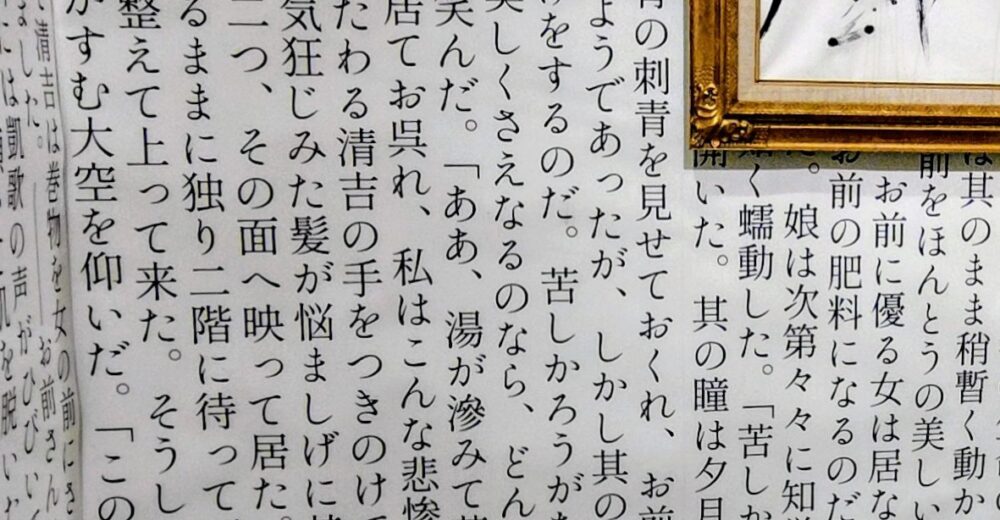 は其のまま稍暫く動か
前をほんとうの美しい
お前に優る女は居な
お前の肥料になるのだ
。娘は次第々々に知
く蠕動した。「苦しか
開いた。其の瞳は夕月
の刺青を見せておくれ、お前
ようであったが、しかし其の
をするのだ。苦しかろうが
美しくさえなるのなら、どん
笑んだ。「ああ、湯が滲みて
居てお呉れ、私はこんな悲惨
たわる清吉の手をつきのけて
気狂じみた髪が悩ましげに
二つ、その面へ映って居た。
るままに独り二階に待って
整えて上って来た。そうし
かすむ大空を仰いだ。「この
清吉は巻物を女の前にさ
ました。――お前さん
には凱歌の声がひびい
肌を脱い